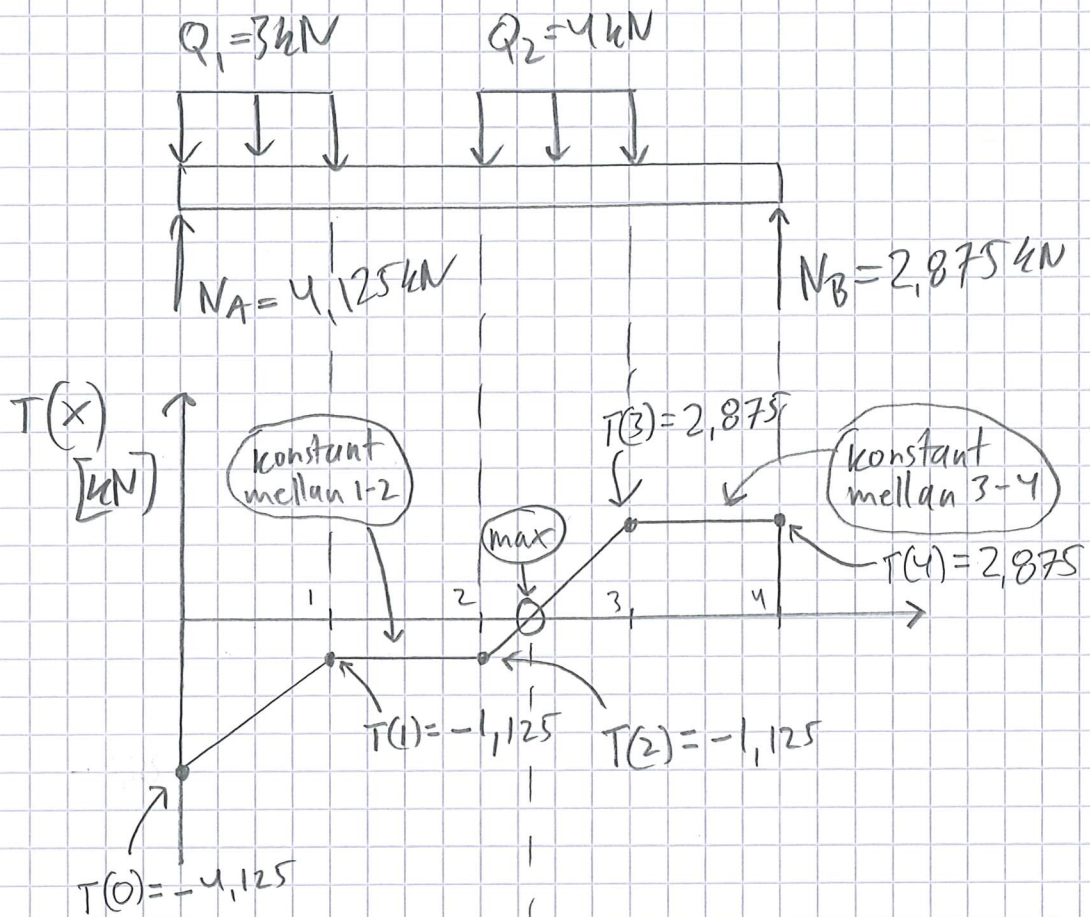 Q₁=3kN
Q₂=4kN
N_A=4,125kN
N_B=2,875kN
T(x)
[kN]
konstant
mellan 1-2
max
T(3)=2,875
konstant
mellan 3-4
T(4)=2,875
1
2
3
4
T(1)=-1,125
T(2)=-1,125
T(0)=-4,125